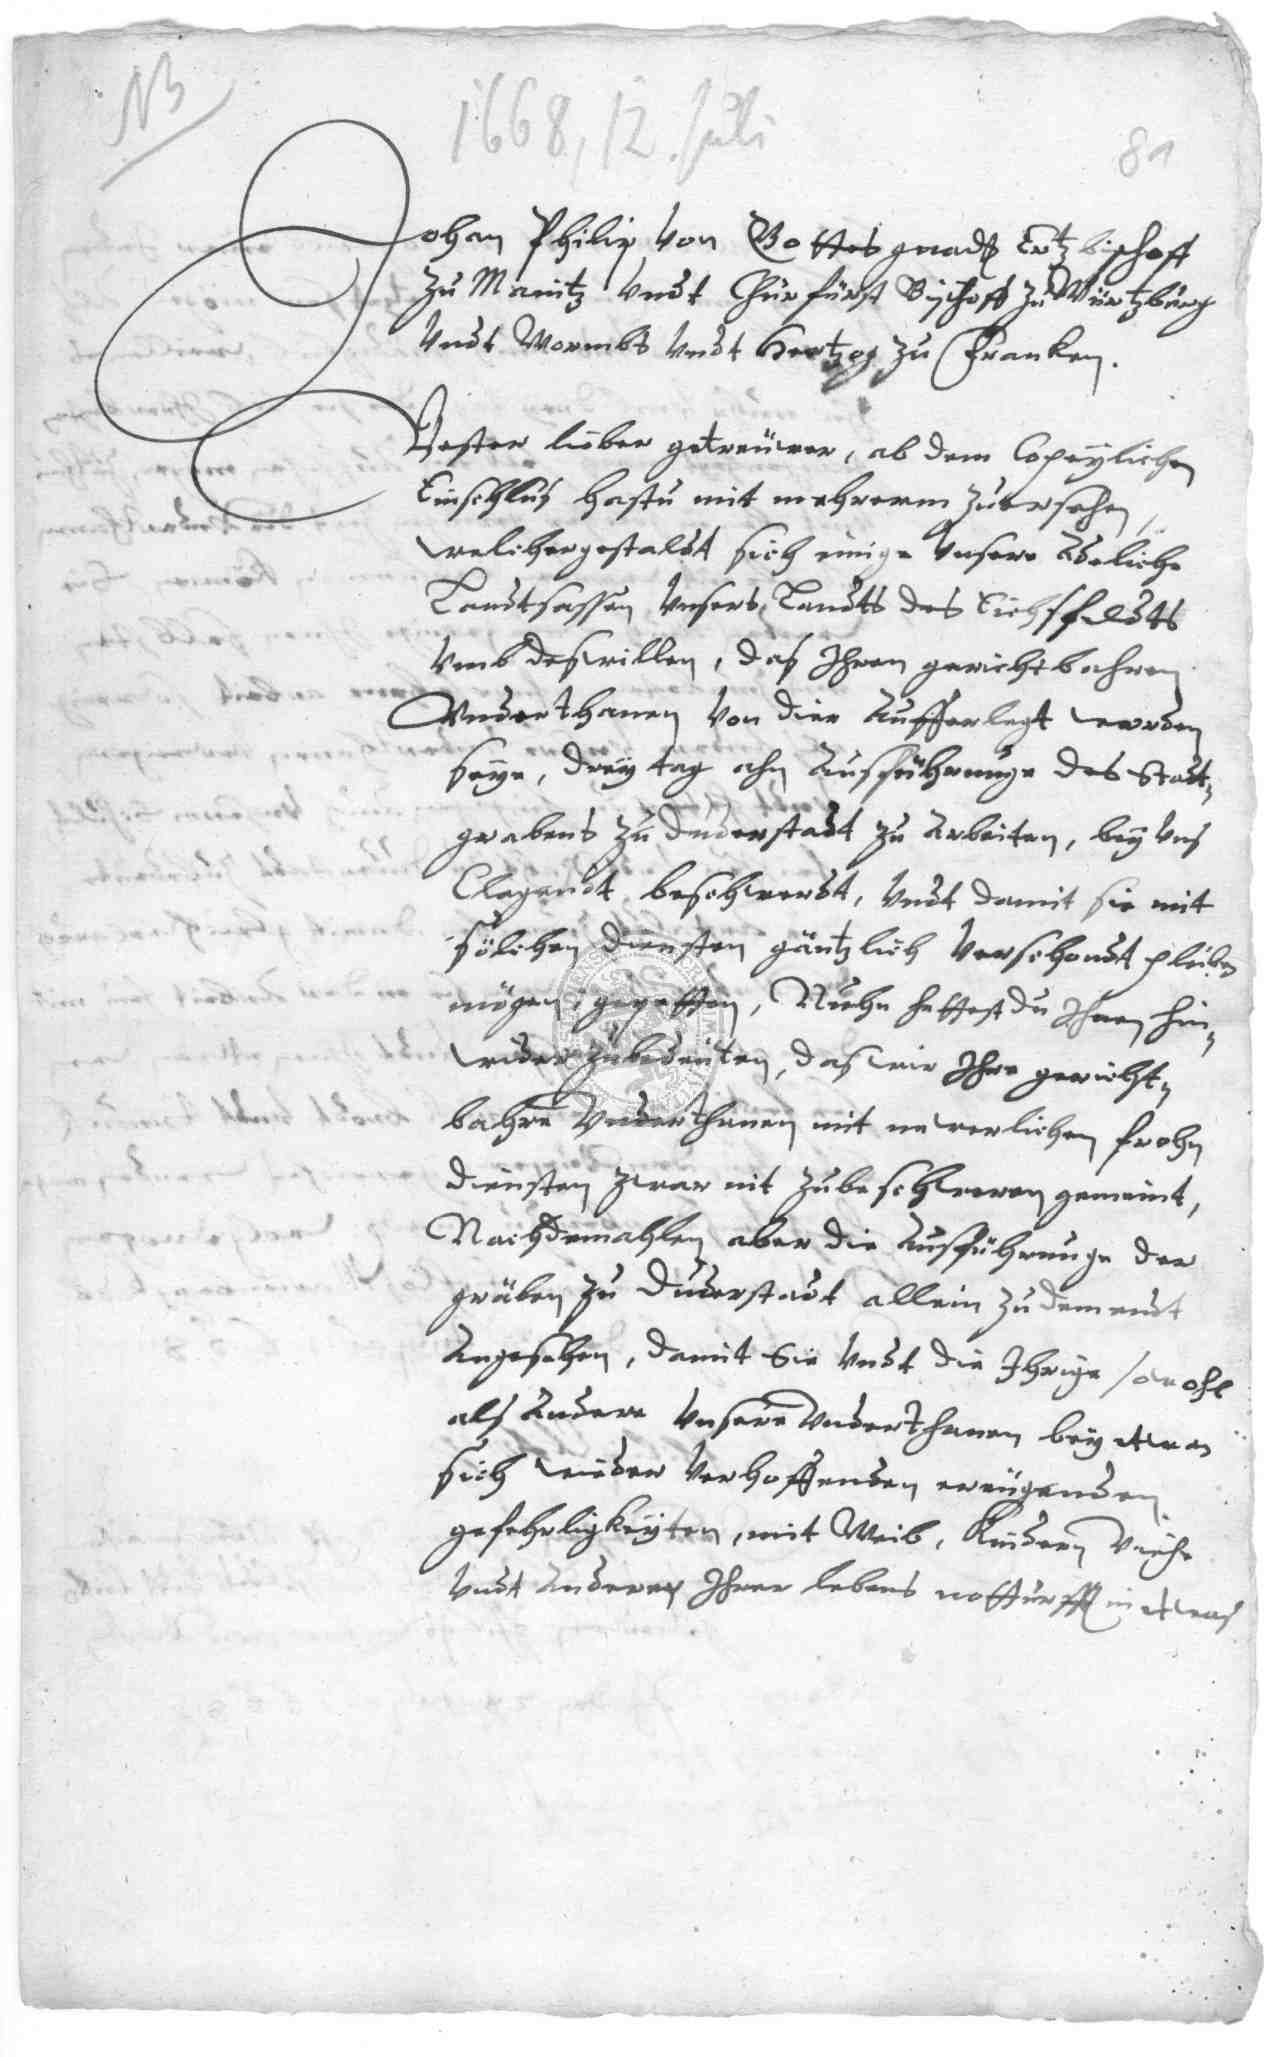 NB
1668, 12. Juli
81
Johan Philip von Gottes gnad Ertzbischoff
zu Maintz undt Churfürst Bischoff zu Würtzburg
Undt Wormbs undt Hertzog zu Francken.
Vester lieber getreüwer, ab dem Copeylichen
Einschlus hastu mit mehrerm zuersehen,
welchergestaldt sich einige Unsere Adeliche
Landtsassen Unsers Landts des Eichsfeldts
umb deswillen, das Ihren gerichtbahren
Underthanen von dier aufferlegt worden
seye, drey tag ahn ausführunge des Stadt-
grabens zu Duderstadt zu arbeiten, bey uns
Clagendt beschwerdt, undt damit sie mit
solchen diensten gäntzlich verschondt pleiben
mögen, gepetten, Nuhn hettest du Ihnen hin-
wieder zubedeuten, das wir Ihre gericht-
bahre Underthanen mit newerlichen frohn
diensten zwar nit zubeschweren gemeint,
Nachdemahlen aber die ausführunge der
gräben zu Duderstadt allein zu dem endt
angesehen, damit Sie undt die Ihrige sowohl
als andere Unsere Underthanen bey etwan
sich wieder verhoffenden ereügenden
gefehrligkeyten, mit Weib, Kindern Viehe
undt anderen Ihrer lebens notturfft in etwas